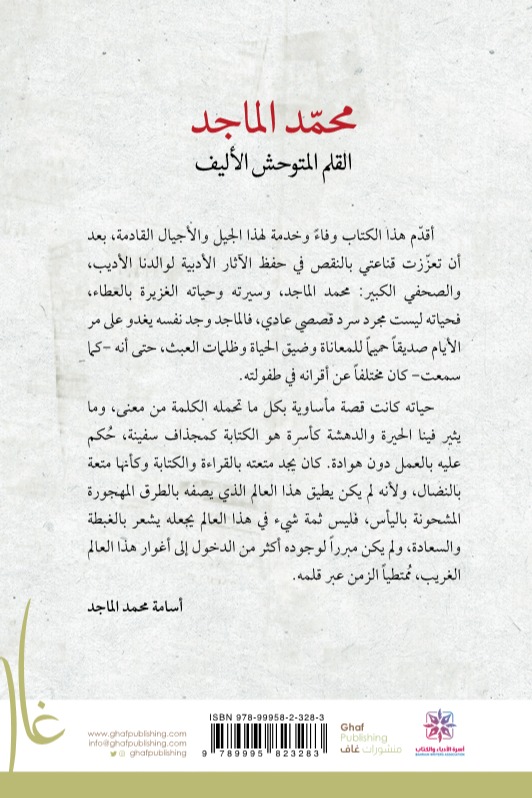 محمّد الماجد
القلم المتوحش الأليف
أقدّم هذا الكتاب وفاءً وخدمة لهذا الجيل والأجيال القادمة، بعد
أن تعزّزت قناعتي بالنقص في حفظ الآثار الأدبية لوالدنا الأديب،
والصحفي الكبير: محمد الماجد، وسيرته وحياته الغزيرة بالعطاء،
فحياته ليست مجرد سرد قصصي عادي، فالماجد وجد نفسه يغدو على مر
الأيام صديقاً حميماً للمعاناة وضيق الحياة وظلمات العبث، حتى أنه –كما
سمعت– كان مختلفاً عن أقرانه في طفولته.
حياته كانت قصة مأساوية بكل ما تحمله الكلمة من معنى، وما
يثير فينا الحيرة والدهشة كأسرة هو الكتابة كمجذاف سفينة، حُكم
عليه بالعمل دون هوادة. كان يجد متعته بالقراءة والكتابة وكأنها متعة
بالنضال، ولأنه لم يكن يطيق هذا العالم الذي يصفه بالطرق المهجورة
المشحونة باليأس، فليس ثمة شيء في هذا العالم يجعله يشعر بالغبطة
والسعادة، ولم يكن مبرراً لوجوده أكثر من الدخول إلى أغوار هذا العالم
الغريب، مُمتطياً الزمن عبر قلمه.
أسامة محمد الماجد
غاف
www.ghafpublishing.com
info@ghafpublishing.com
ghafpublishing
ISBN 978-99958-2-328-3
9 789995 823283
Ghaf
Publishing
منشورات غاف
أسرة الأدباء والكتاب
BAHRAIN WRITERS ASSOCIATION